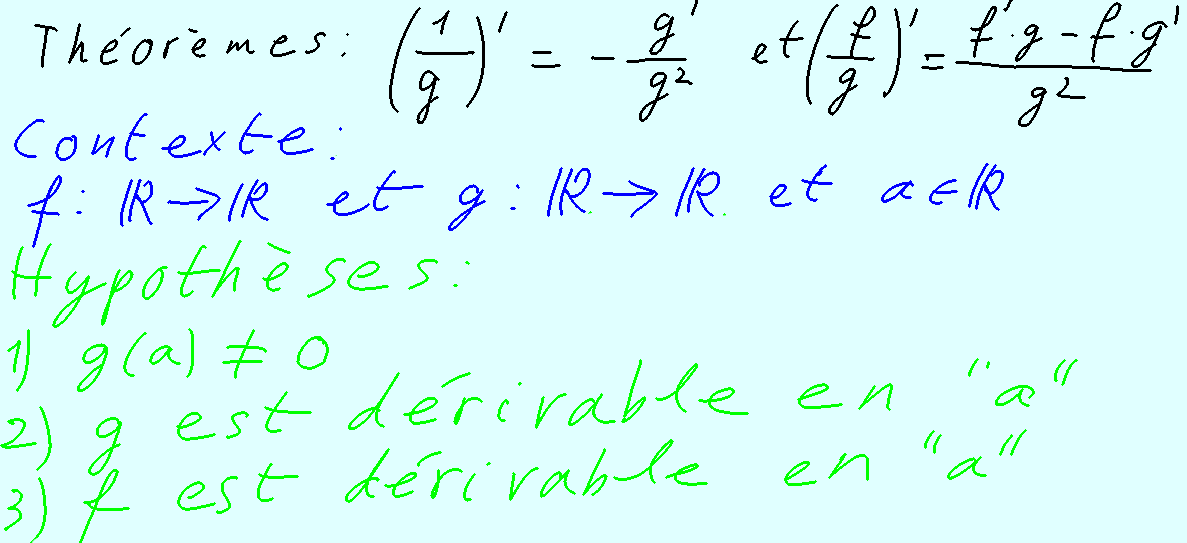 Théorèmes: (1/g)' = - g'/g² et (f/g)' = (f'·g - f·g')/g²
Contexte:
f: ℝ→ℝ et g: ℝ→ℝ et a∈ℝ
Hypothèses:
1) g(a) ≠ 0
2) g est dérivable en "a"
3) f est dérivable en "a"